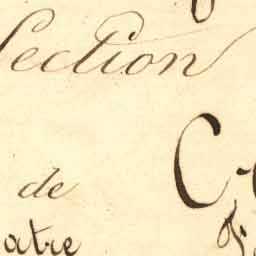 Section
de
atre